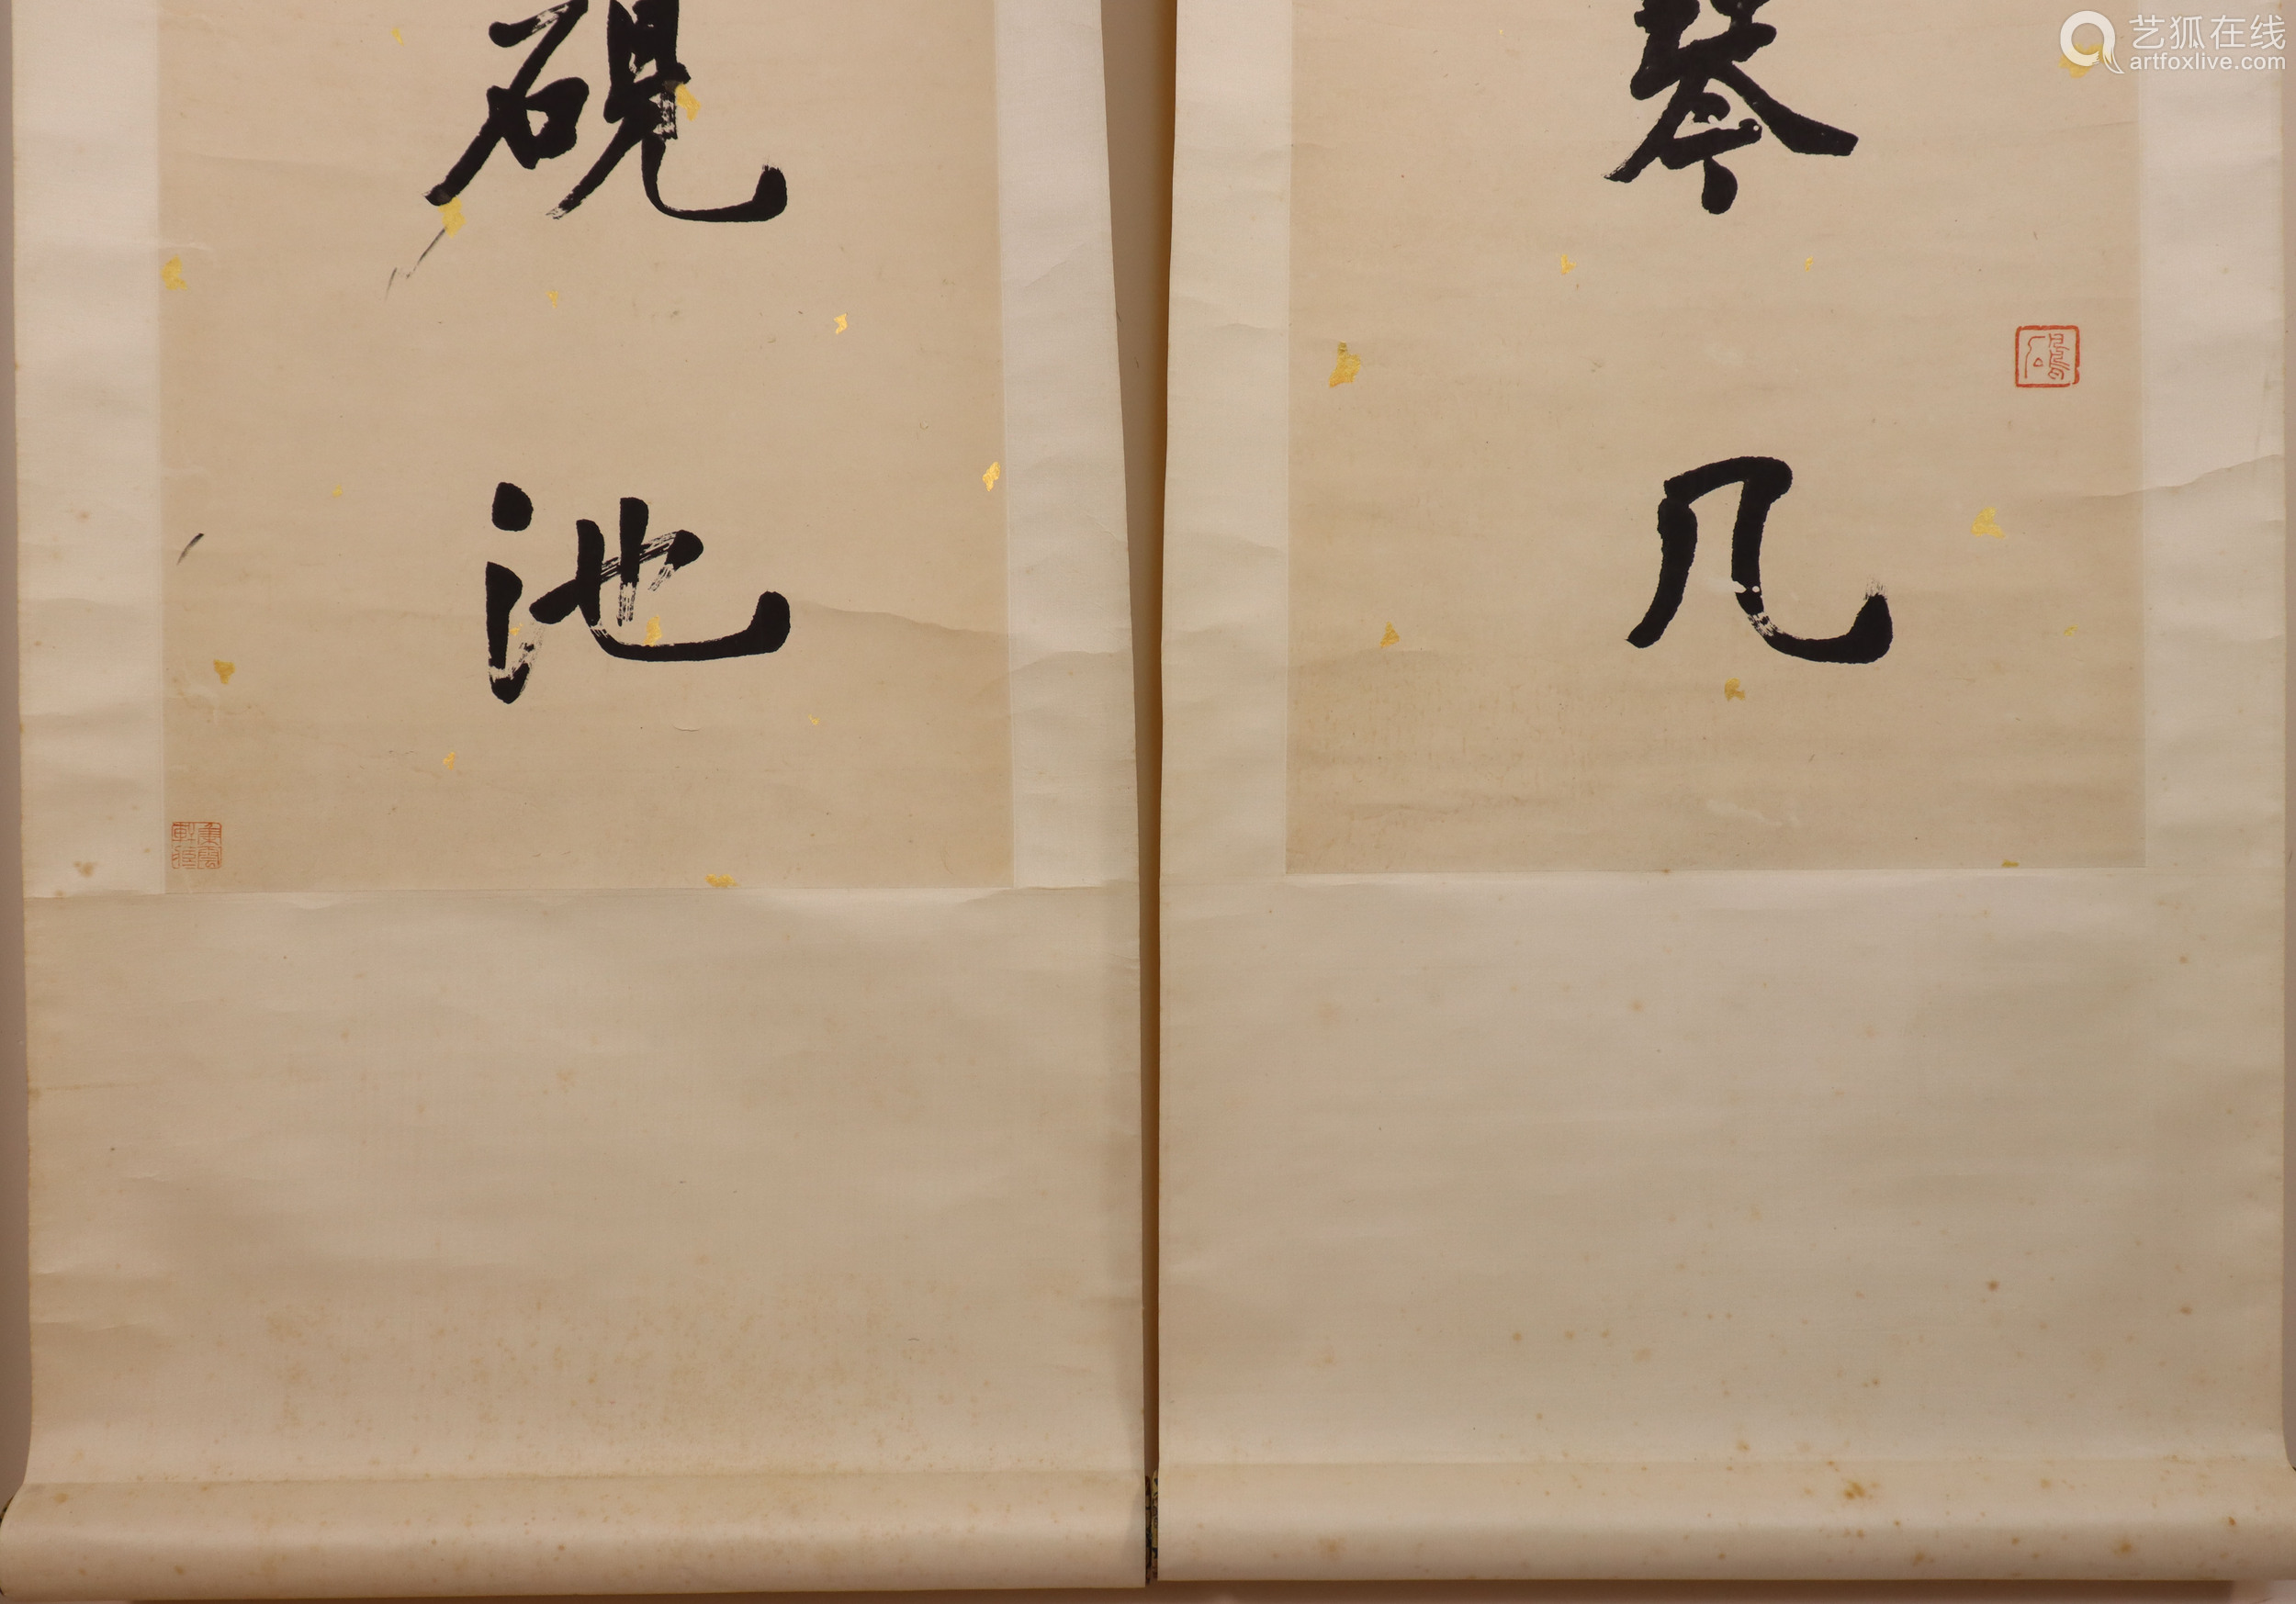 琴几
硯池
艺狐在线
artfoxlive.com